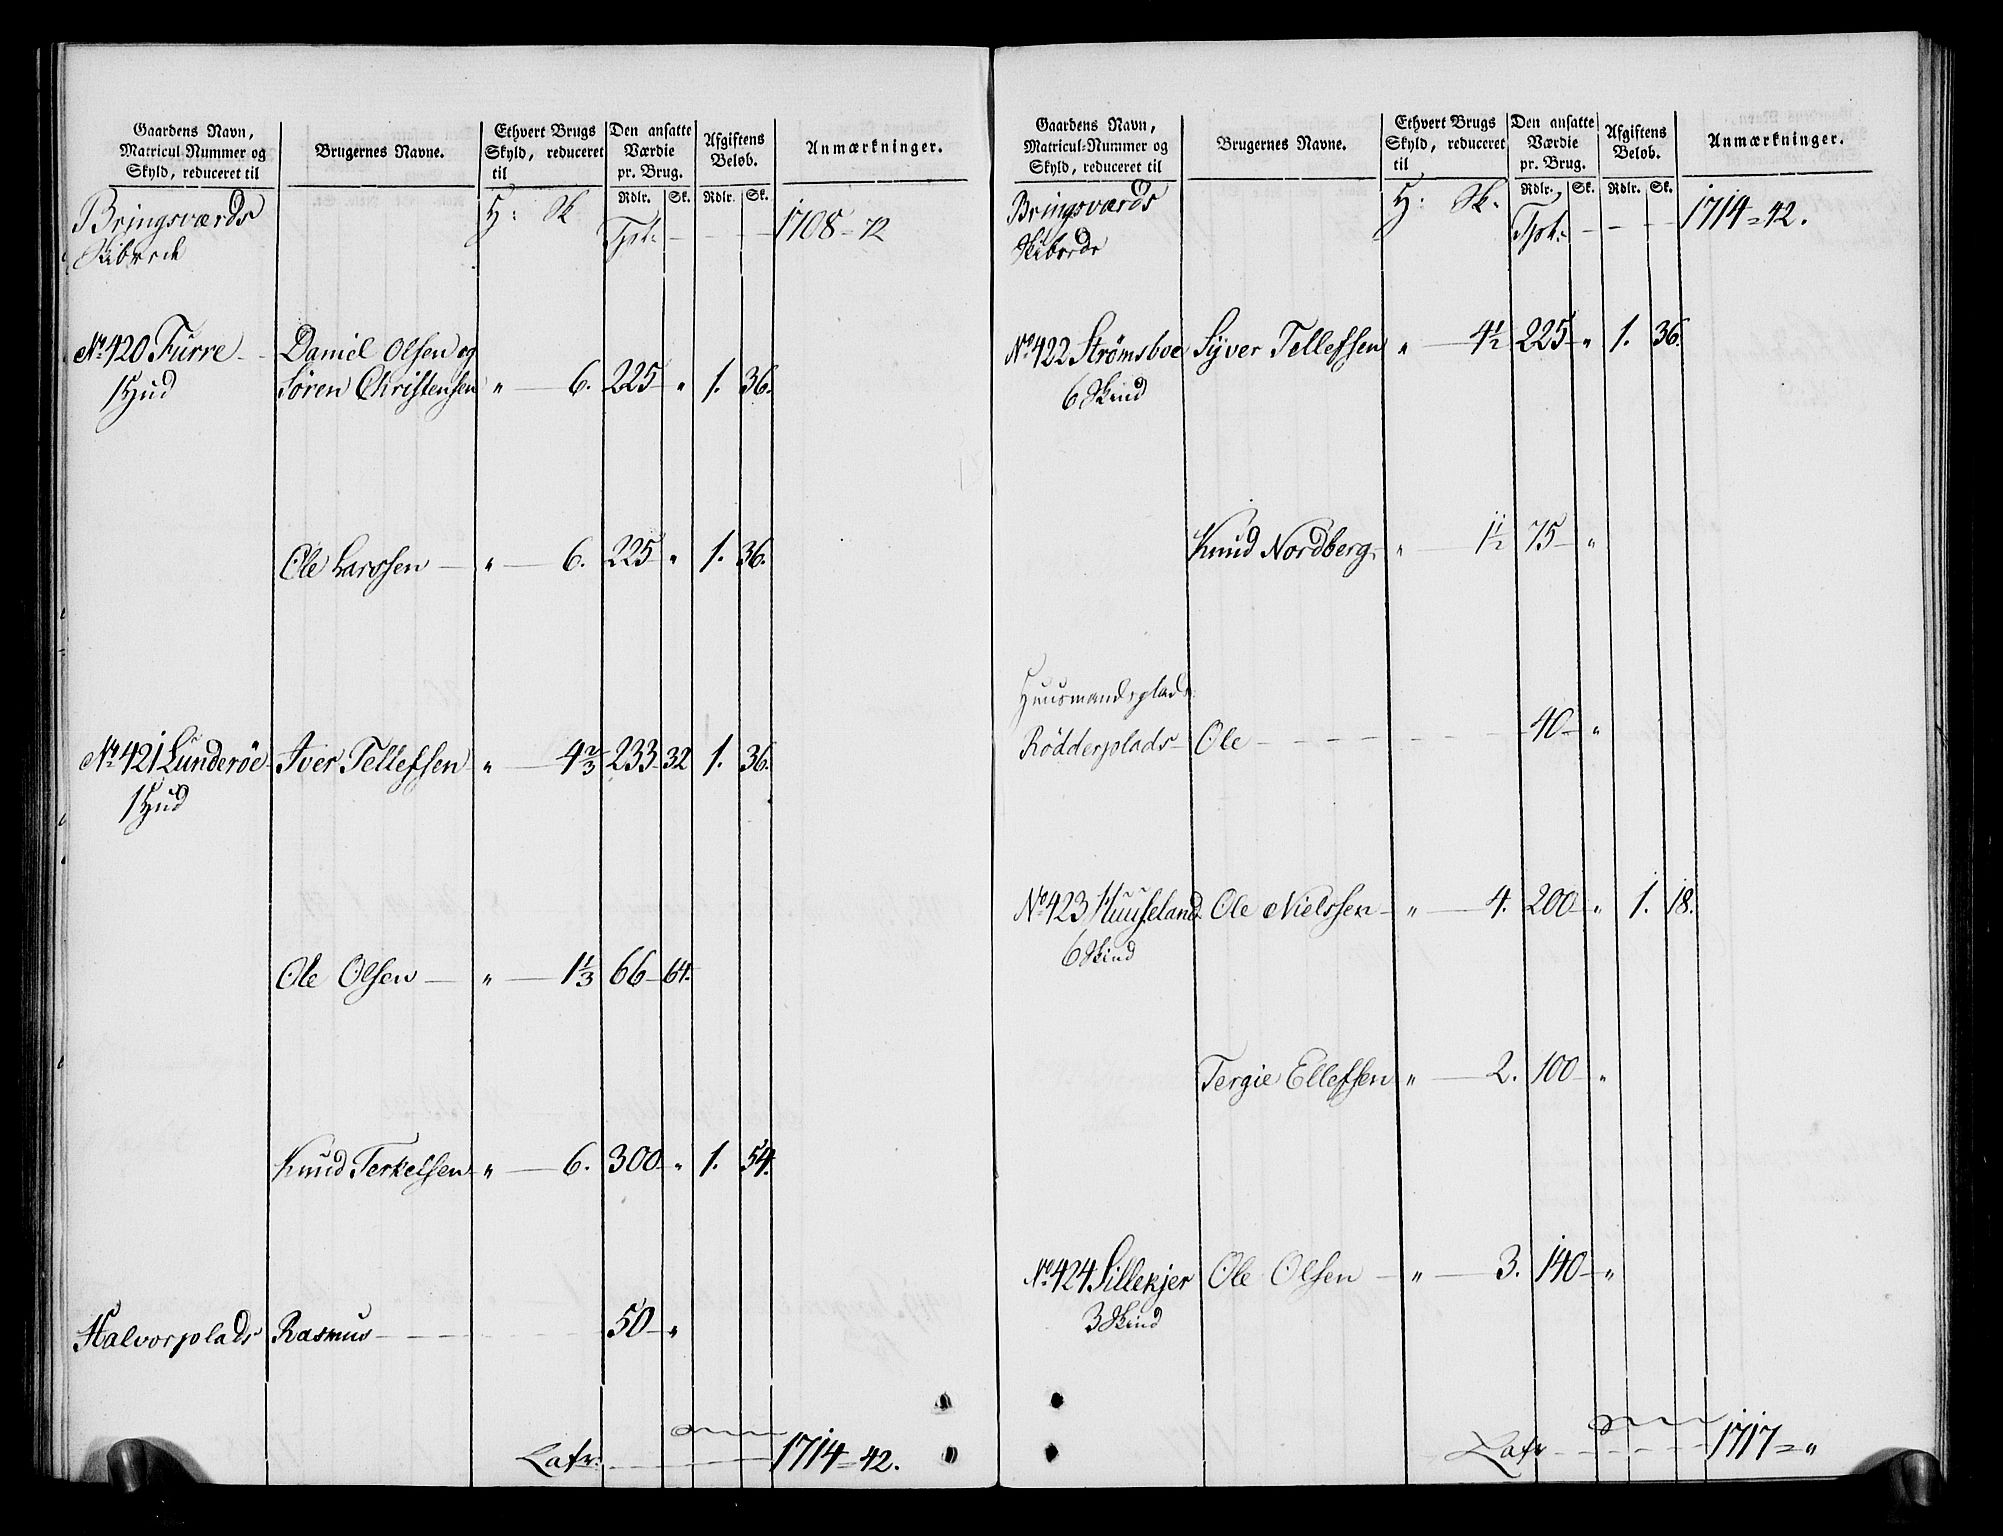 Gaardens Navn,
Matricul-Nummer og
Skyld, reduceret til
Brugernes Navne.
Ethvert Brugs
Skyld, reduceret
til
Den ansatte
Værdie
pr. Brug.
Afgiftens
Beløb.
Anmærkninger.
Rdlr. Sk. Rdlr. Sk.
Bringsværds H: Sk Tpt: - - - 1708 - 72
Skibrede
No 420 Furre - Daniel Olsen og
1 Hud Søren Christensen " - 6. 225 " 1. 36.
Ole Larssen - " - 6. 225 " 1. 36.
No 421 Lunderöe Iver Tellefsen " - 4 2/3 233 - 32 1. 36.
1 Hud
Ole Olsen - " - 1 1/3 66 - 64.
Knud Terkelsen " - 6. 300 " 1. 54.
Halvorplads Rasmus - - - 50 - "
Latr: - - - 1714 - 42.
Gaardens Navn,
Matricul-Nummer og
Skyld, reduceret til
Brugernes Navne.
Ethvert Brugs
Skyld, reduceret
til
Den ansatte
Værdie
pr. Brug.
Afgiftens
Beløb.
Anmærkninger.
Rdlr. Sk. Rdlr. Sk.
Bringsværds H: Sk. Tpt: - - - 1714 = 42.
Skibrede
No 422 Strømsboe Syver Tellefsen " - 4 1/2 225 - " 1. 36.
6 Skind
Knud Nordberg " - 1 1/2 75 - "
Huusmandsplads
Rödderplads - Ole - - - 40 - "
No 423 Huuseland Ole Nielssen - " - 4. 200 - " 1. 18.
6 Skind
Tergie Ellefsen " - 2. 100 - "
No 424 Sillekjer Ole Olsen - " - 3. 140 - "
3 Skind
Latr - - - 1717 = "